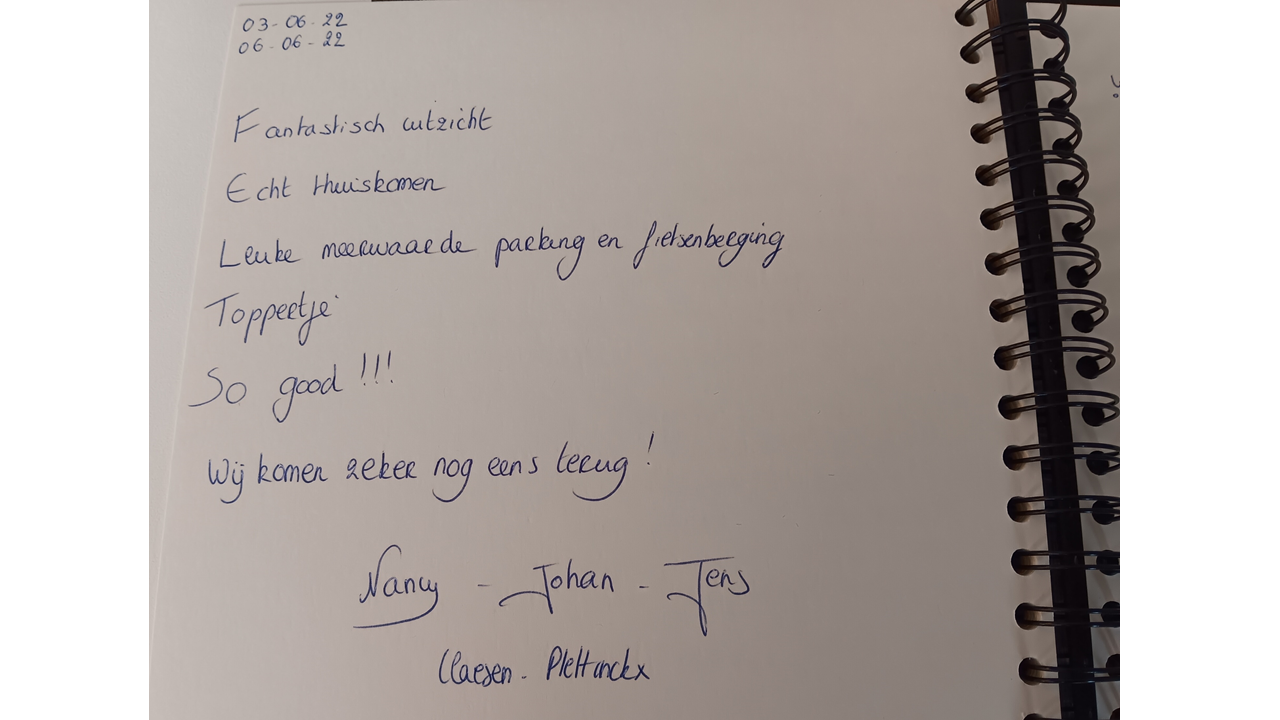 03-06-22
06-06-22
Fantastisch uitzicht
Echt thuiskomen
Leuke meerwaarde parking en fietsenberging
Toppertje
So good !!!
Wij komen zeker nog eens terug !
Nancy - Johan - Jens
Claesen - Plettinckx